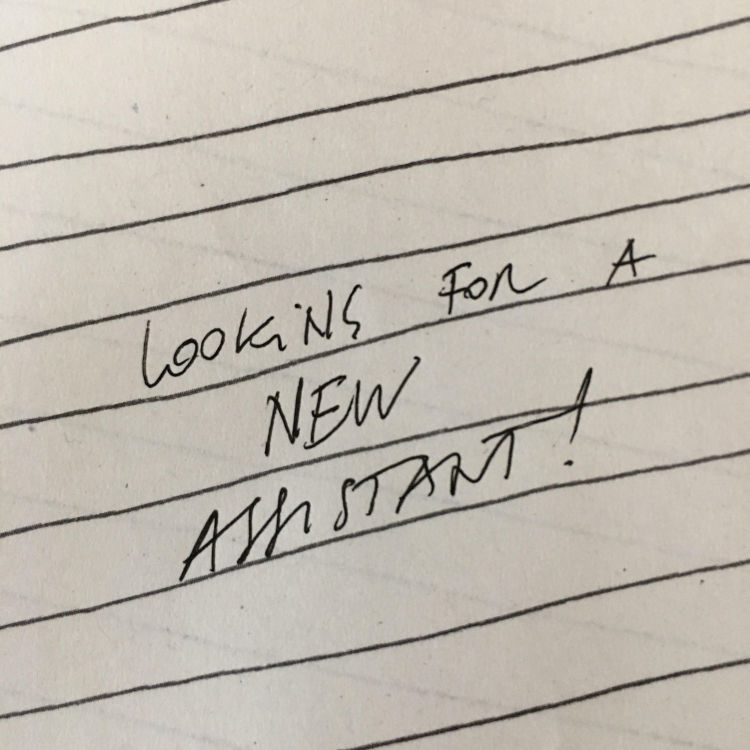 LOOKiNG FOR A
NEW
ASSISTANT!